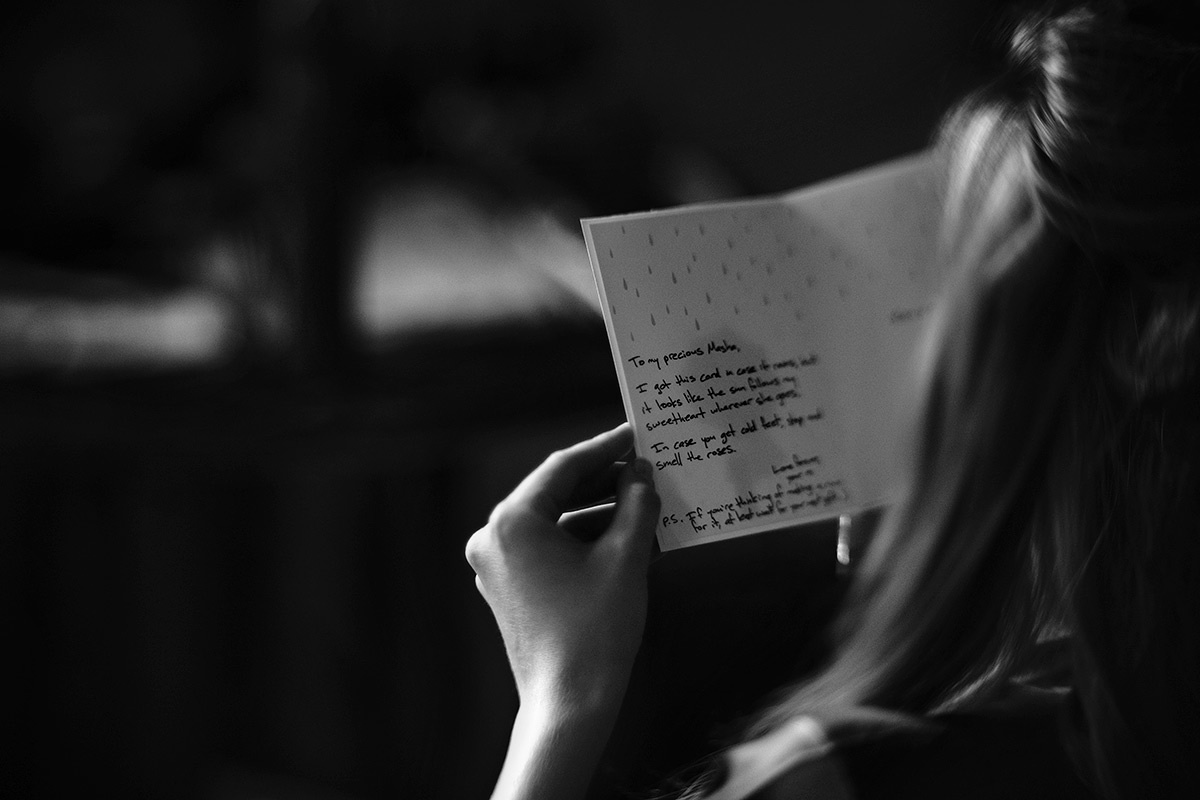 To my precious Masha,
I got this card in case it rains, but
it looks like the sun follows my
sweetheart wherever she goes.
In case you get cold feet, stop and
smell the roses.
your
P.S. If you're thinking of making a run
for it, at least wait for your next gift :)